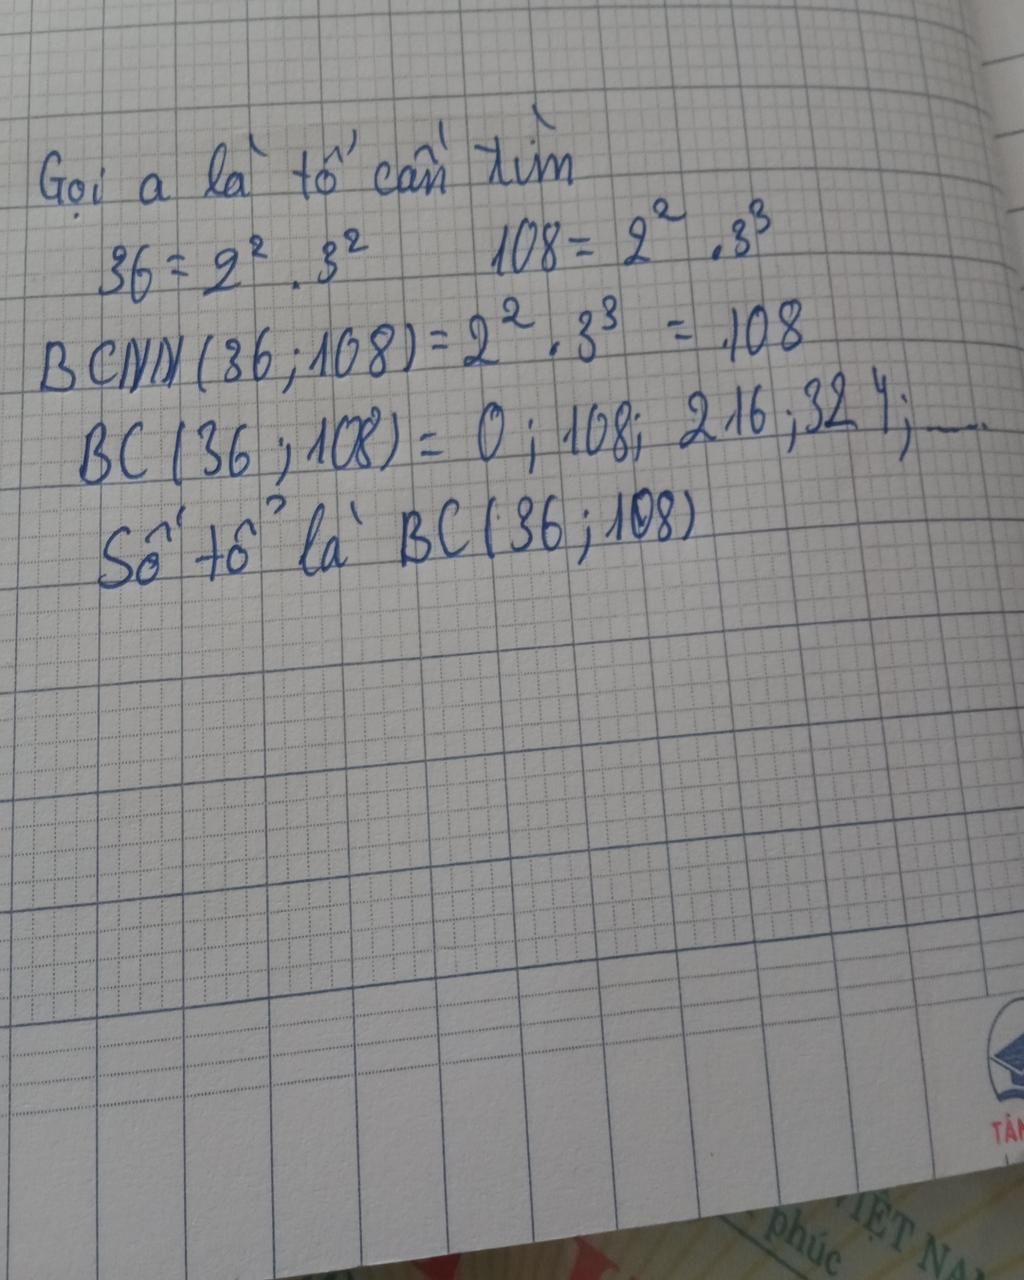 Gọi a là tố cần tìm
36 = 2² . 3² 108 = 2² . 3³
BCNN (36 ; 108) = 2² . 3³ = 108
BC (36 ; 108) = 0 ; 108; 216 ; 324 ; ....
Số tổ là BC (36 ; 108)
TÂN
VIỆT NA
phúc